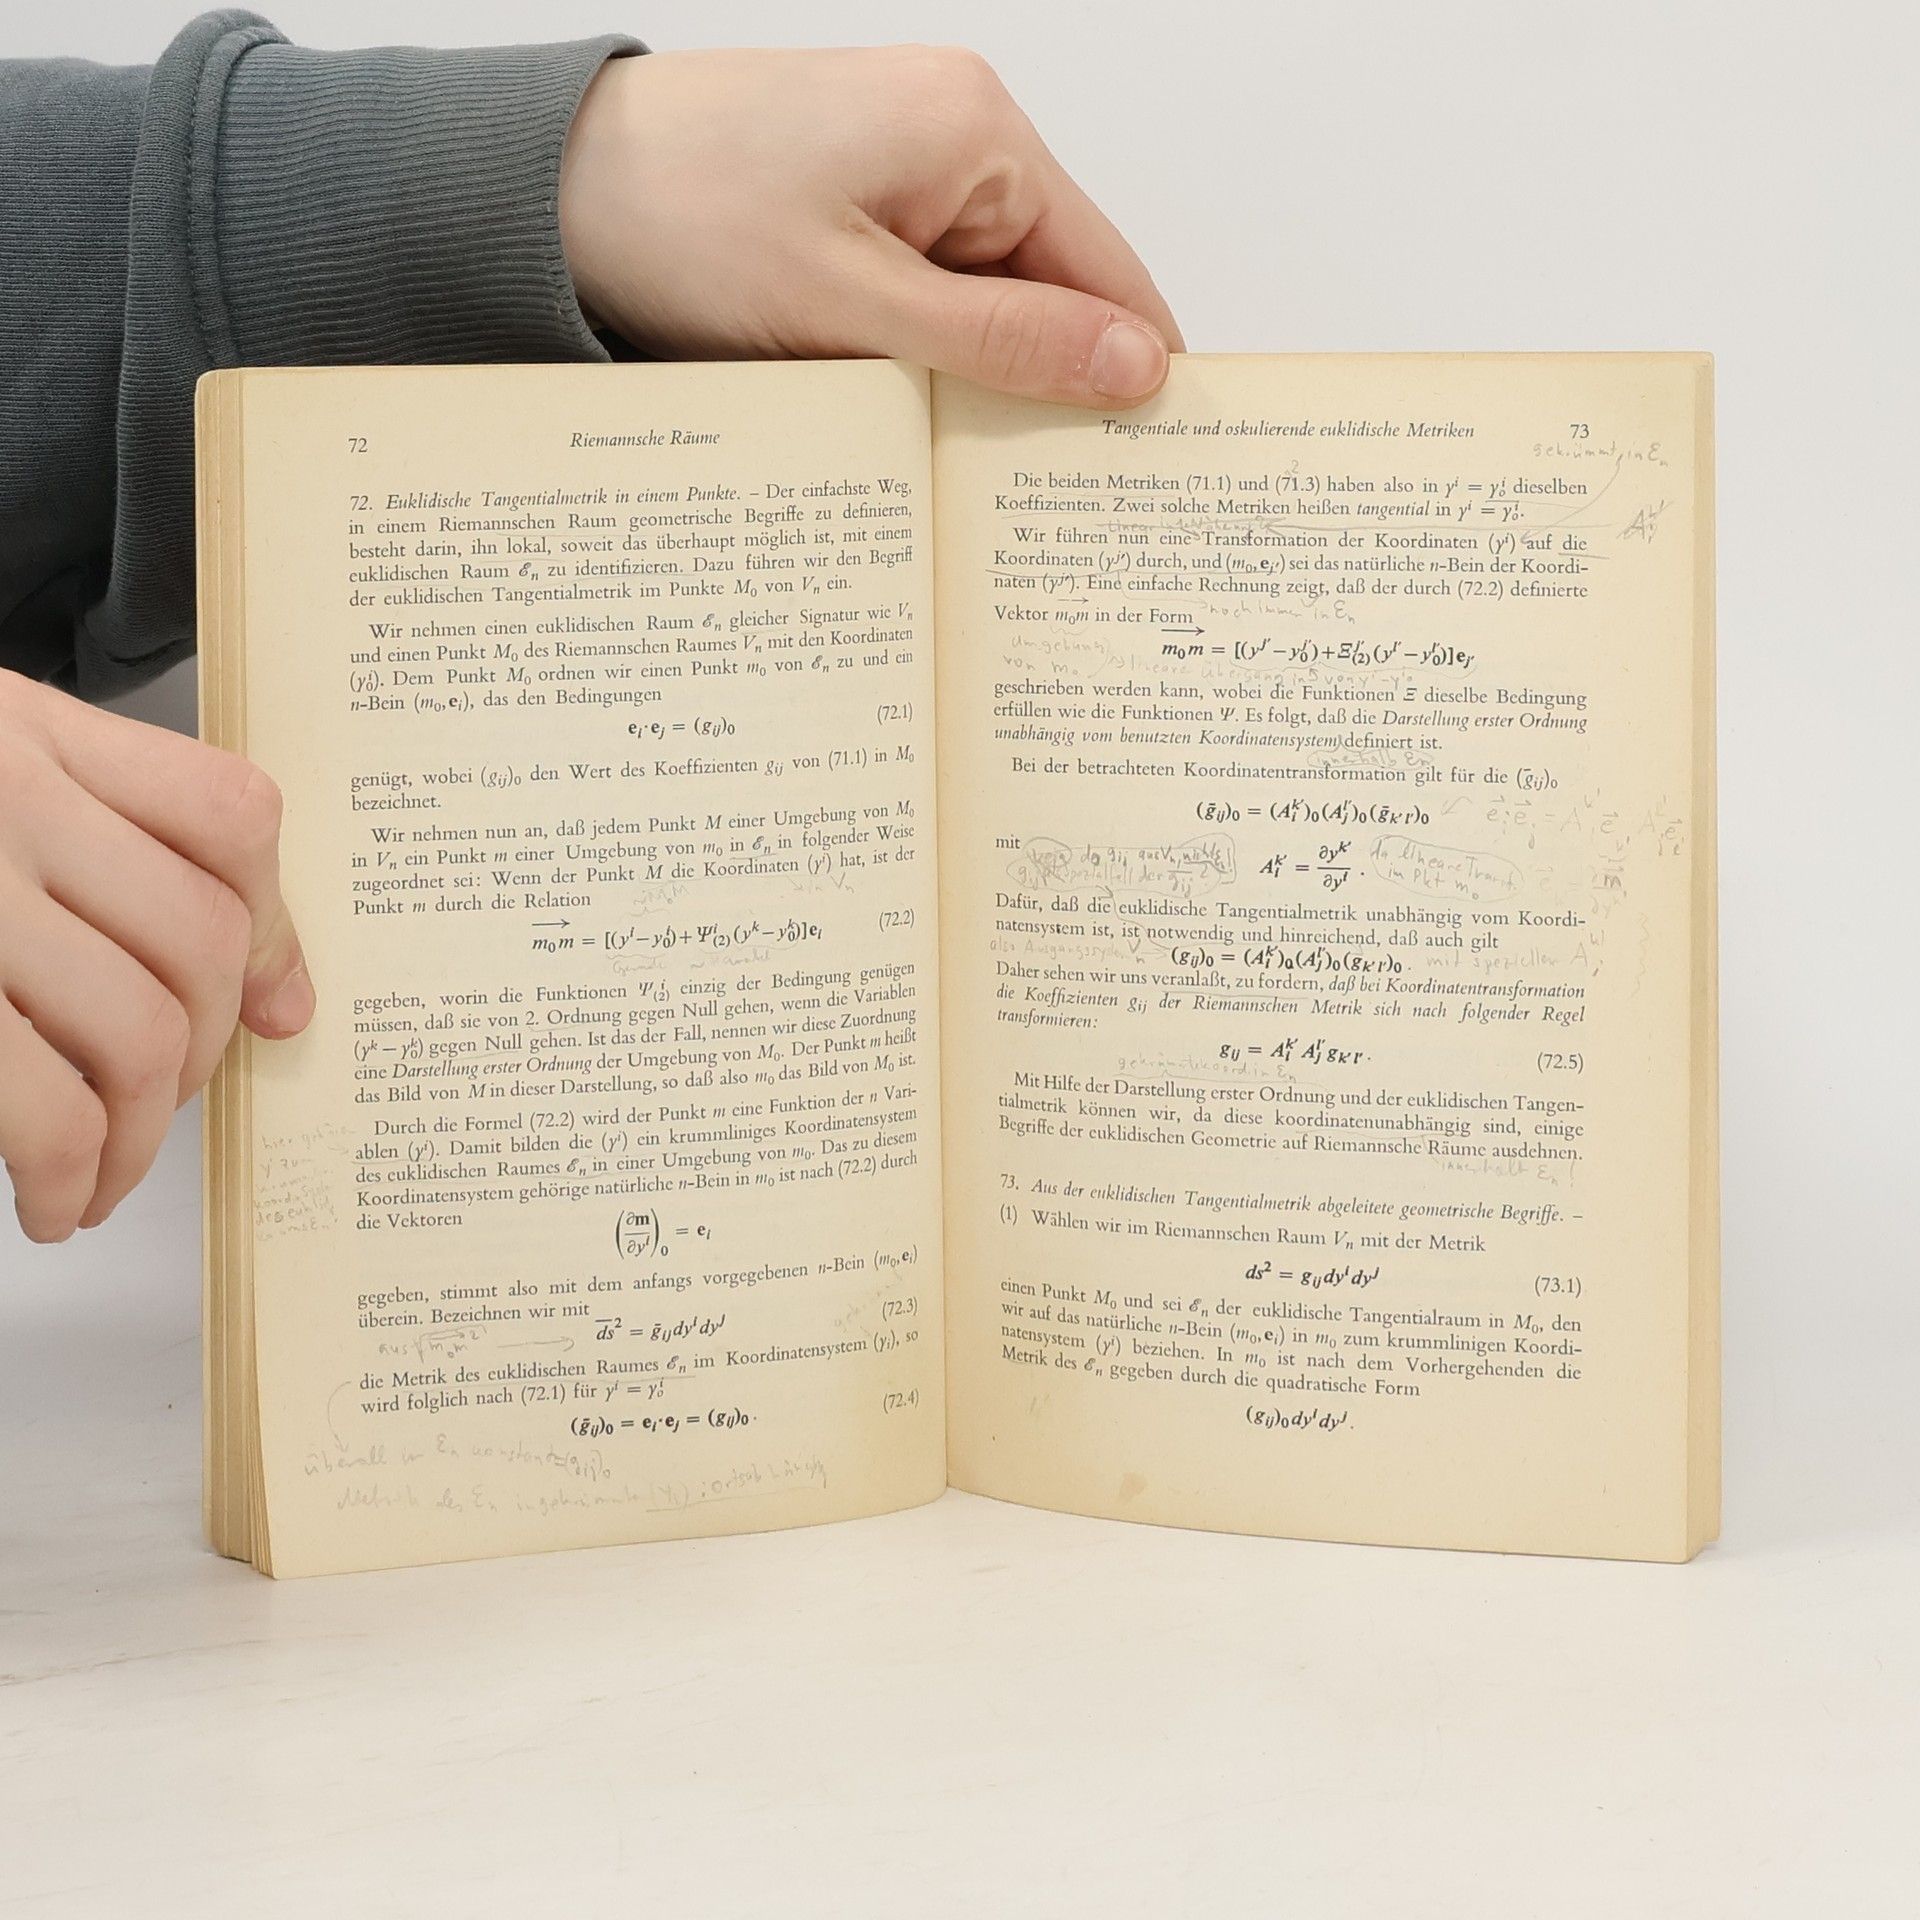 72
Riemannsche Räume
72. Euklidische Tangentialmetrik in einem Punkte. – Der einfachste Weg,
in einem Riemannschen Raum geometrische Begriffe zu definieren,
besteht darin, ihn lokal, soweit das überhaupt möglich ist, mit einem
euklidischen Raum ℰₙ zu identifizieren. Dazu führen wir den Begriff
der euklidischen Tangentialmetrik im Punkte M₀ von Vₙ ein.
Wir nehmen einen euklidischen Raum ℰₙ gleicher Signatur wie Vₙ
und einen Punkt M₀ des Riemannschen Raumes Vₙ mit den Koordinaten
(y₀ⁱ). Dem Punkt M₀ ordnen wir einen Punkt m₀ von ℰₙ zu und ein
n-Bein (m₀, eᵢ), das den Bedingungen
eᵢ·eⱼ = (gᵢⱼ)₀ (72.1)
genügt, wobei (gᵢⱼ)₀ den Wert des Koeffizienten gᵢⱼ von (71.1) in M₀
bezeichnet.
Wir nehmen nun an, daß jedem Punkt M einer Umgebung von M₀
in Vₙ ein Punkt m einer Umgebung von m₀ in ℰₙ in folgender Weise
zugeordnet sei: Wenn der Punkt M die Koordinaten (yⁱ) hat, ist der
Punkt m durch die Relation
in Vₙ
m₀m = [(yⁱ – y₀ⁱ) + Ψ₍₂₎ⁱ (yᵏ – y₀ᵏ)]eᵢ (72.2)
gegeben, worin die Funktionen Ψ₍₂₎ⁱ einzig der Bedingung genügen
müssen, daß sie von 2. Ordnung gegen Null gehen, wenn die Variablen
(yᵏ – y₀ᵏ) gegen Null gehen. Ist das der Fall, nennen wir diese Zuordnung
eine Darstellung erster Ordnung der Umgebung von M₀. Der Punkt m heißt
das Bild von M in dieser Darstellung, so daß also m₀ das Bild von M₀ ist.
Durch die Formel (72.2) wird der Punkt m eine Funktion der n Vari-
ablen (yⁱ). Damit bilden die (yⁱ) ein krummliniges Koordinatensystem
des euklidischen Raumes ℰₙ in einer Umgebung von m₀. Das zu diesem
Koordinatensystem gehörige natürliche n-Bein in m₀ ist nach (72.2) durch
die Vektoren
(∂m/∂yⁱ)₀ = eᵢ
gegeben, stimmt also mit dem anfangs vorgegebenen n-Bein (m₀, eᵢ)
überein. Bezeichnen wir mit
d̅s̅² = ḡᵢⱼdyⁱdyʲ (72.3)
die Metrik des euklidischen Raumes ℰₙ im Koordinatensystem (yᵢ), so
wird folglich nach (72.1) für yⁱ = y₀ⁱ
(ḡᵢⱼ)₀ = eᵢ·eⱼ = (gᵢⱼ)₀. (72.4)
überall in Eₙ konstant=(gᵢⱼ)₀
Tangentiale und oskulierende euklidische Metriken
73
gekrümmt in Eₙ
Die beiden Metriken (71.1) und (71.3) haben also in yⁱ = y₀ⁱ dieselben
Koeffizienten. Zwei solche Metriken heißen tangential in yⁱ = y₀ⁱ.
Wir führen nun eine Transformation der Koordinaten (yⁱ) auf die
Koordinaten (yʲ′) durch, und (m₀, eⱼ′) sei das natürliche n-Bein der Koordi-
naten (yʲ′). Eine einfache Rechnung zeigt, daß der durch (72.2) definierte
Vektor m₀m in der Form
noch immer in Eₙ
m₀m = [(yʲ′ – y₀ʲ′) + Ξ₍₂₎ʲ′(yˡ′ – y₀ˡ′)]eⱼ′
Umgebung
von m₀
geschrieben werden kann, wobei die Funktionen Ξ dieselbe Bedingung
erfüllen wie die Funktionen Ψ. Es folgt, daß die Darstellung erster Ordnung
unabhängig vom benutzten Koordinatensystem definiert ist.
innerhalb Eₙ
Bei der betrachteten Koordinatentransformation gilt für die (ḡᵢⱼ)₀
(ḡᵢⱼ)₀ = (Aᵢᵏ′)₀(Aⱼˡ′)₀(ḡₖ′ₗ′)₀
mit
Aᵢᵏ′ = ∂yᵏ′/∂yⁱ.
da lineare Transf.
im Pkt m₀
Dafür, daß die euklidische Tangentialmetrik unabhängig vom Koordi-
natensystem ist, ist notwendig und hinreichend, daß auch gilt
(gᵢⱼ)₀ = (Aᵢᵏ′)₀(Aⱼˡ′)₀(gₖ′ₗ′)₀.
mit speziellen A
Daher sehen wir uns veranlaßt, zu fordern, daß bei Koordinatentransformation
die Koeffizienten gᵢⱼ der Riemannschen Metrik sich nach folgender Regel
transformieren:
gᵢⱼ = Aᵢᵏ′ Aⱼˡ′ gₖ′ₗ′. (72.5)
Mit Hilfe der Darstellung erster Ordnung und der euklidischen Tangen-
tialmetrik können wir, da diese koordinatenunabhängig sind, einige
Begriffe der euklidischen Geometrie auf Riemannsche Räume ausdehnen.
innerhalb Eₙ!
73. Aus der euklidischen Tangentialmetrik abgeleitete geometrische Begriffe. –
(1) Wählen wir im Riemannschen Raum Vₙ mit der Metrik
ds² = gᵢⱼdyⁱdyʲ (73.1)
einen Punkt M₀ und sei ℰₙ der euklidische Tangentialraum in M₀, den
wir auf das natürliche n-Bein (m₀, eᵢ) in m₀ zum krummlinigen Koordi-
natensystem (yⁱ) beziehen. In m₀ ist nach dem Vorhergehenden die
Metrik des ℰₙ gegeben durch die quadratische Form
(gᵢⱼ)₀dyⁱdyʲ.